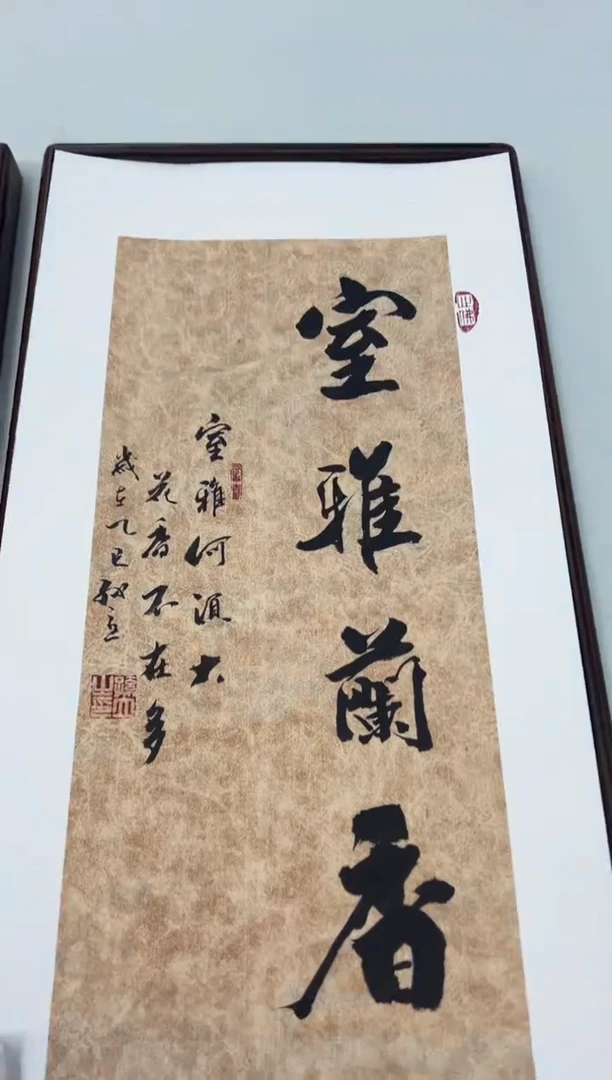 室雅蘭香
室雅何須大
花香不在多
歲在乙巳